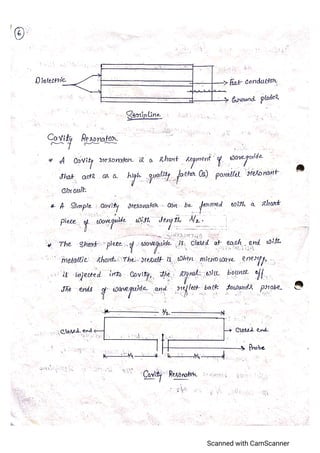 6
Dielectric
Flat conductor
Ground plates
Stripline
Cavity Resonator
* A cavity resonator is a short segment of waveguide
that acts as a high quality factor (Q) parallel resonant
circuit.
* A Simple cavity resonator can be formed with a short
piece of waveguide with length λ/2.
* The short piece of waveguide is closed at each end with
metallic short. The result is when microwave energy,
is injected into cavity, the signal will bounce off
the ends of waveguide and reflect back towards probe.
λ/2
Closed end
Closed end
Probe
λ/4
λ/4
Cavity Resonator
Scanned with CamScanner